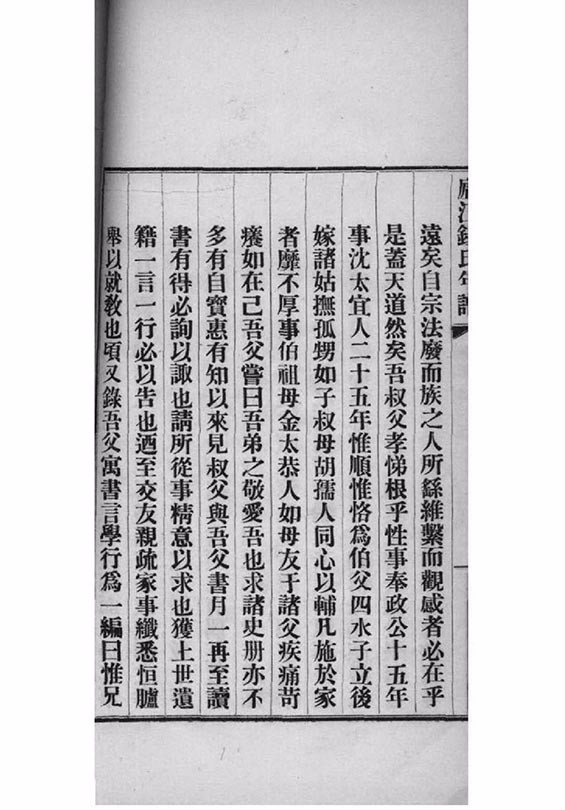 廬江錢氏年譜
遠矣自宗法廢而族之人所繇維繫而觀感者必在乎
是蓋天道然矣吾叔父孝悌根乎性事奉政公十五年
事沈太宜人二十五年惟順惟恪爲伯父四水子立後
嫁諸姑撫孤甥如子叔母胡孺人同心以輔凡施於家
者靡不厚事伯祖母金太恭人如母友于諸父疾痛苛
癢如在己吾父嘗曰吾弟之敬愛吾也求諸史册亦不
多有自寳惠有知以來見叔父與吾父書月一再至讀
書有得必詢以諏也請所從事精意以求也獲上世遺
籍一言一行必以告也迺至交友親疏家事纖悉恒臚
舉以就敎也頃又錄吾父寓書言學行爲一編曰惟兄